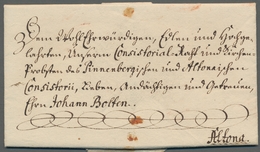 Dem WohlEhrwürdigen, Edlen und Hochge-
lahrten, Unserm Consistorial-Raht und Kirchen-
Probsten des Pinnenbergischen und Altonaischen
Consistorii, Lieben, Andächtigen und Getreuen,
Ehrn Johann Bolten.
Altona